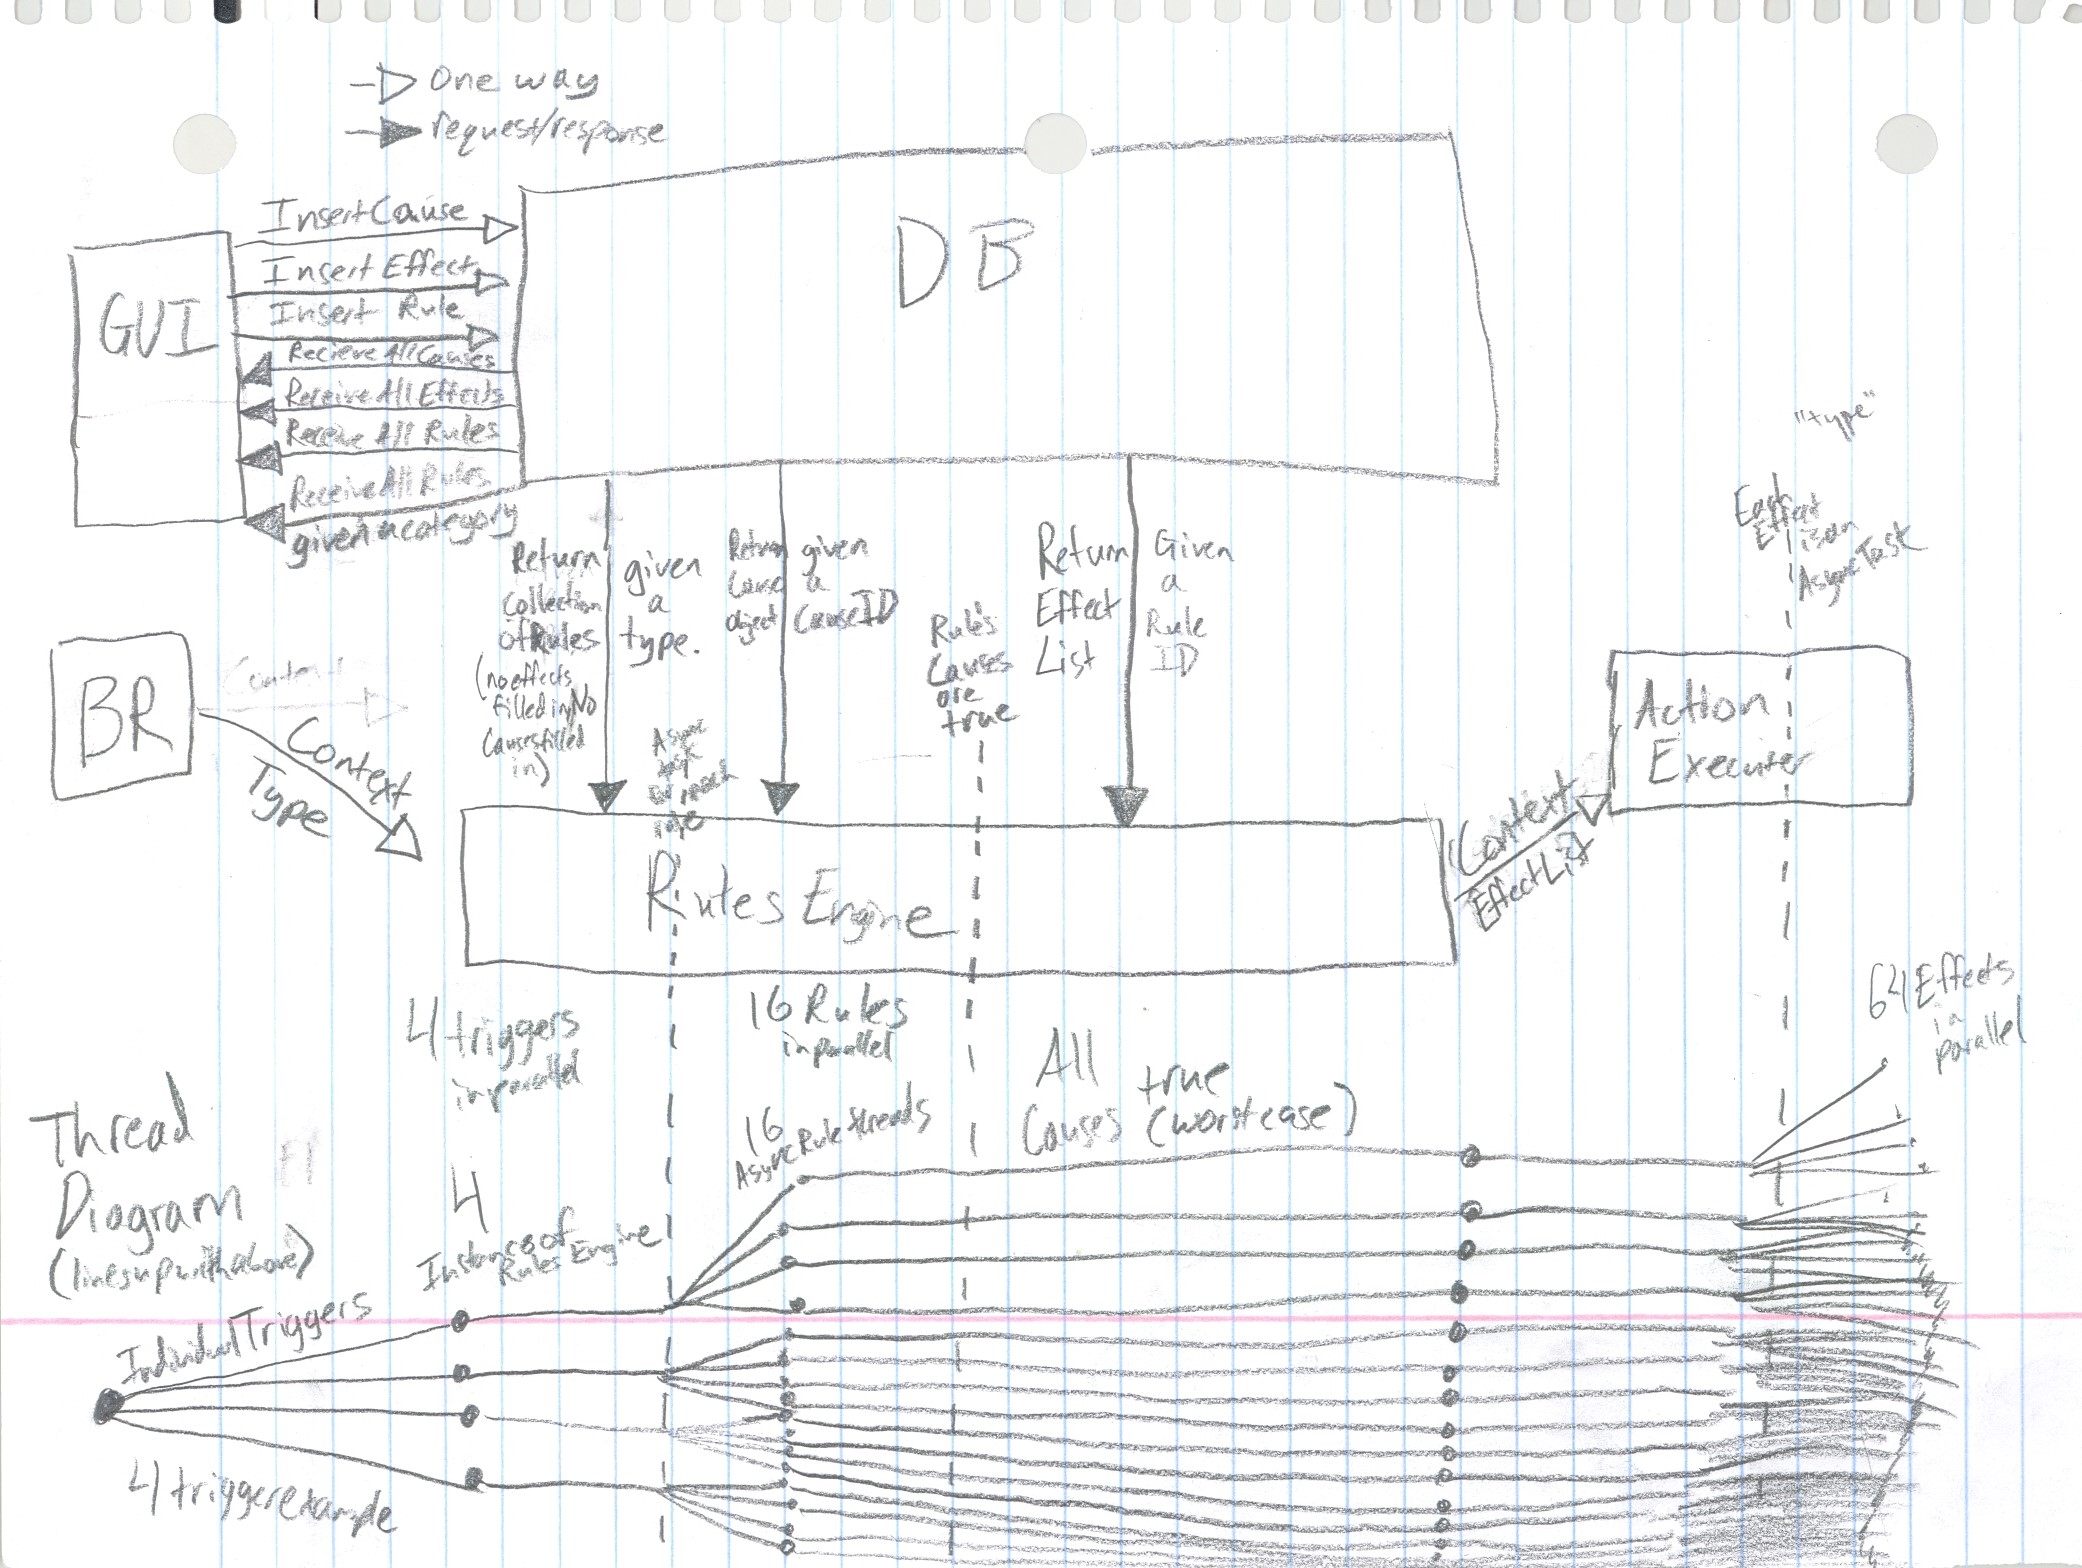 One way
request/response
Insert Cause
Insert Effect
Insert Rule
Recieve All Causes
Receive All Effects
Receive All Rules
Receive All Rules
given a category
GUI
DB
"type"
Each
Effect
is an
AsyncTask
Return
Collection
of Rules
(no effects
filled in, No
Causes filled
in)
given
a
type.
Return
Cause
object
given
a
CauseID
Rule's
Causes
are
true
Return
Effect
List
Given
a
Rule
ID
BR
Context
Context
Type
Async
task
for each
rule
Rules Engine
Context
EffectList
Action
Executer
4 triggers
in parallel
16 Rules
in parallel
All
Causes
true
(worst case)
64 Effects
in
parallel
Thread
Diagram
(lines up with above)
4
Instances of
Rules Engine
16
AsyncRule threads
Individual Triggers
4 trigger example